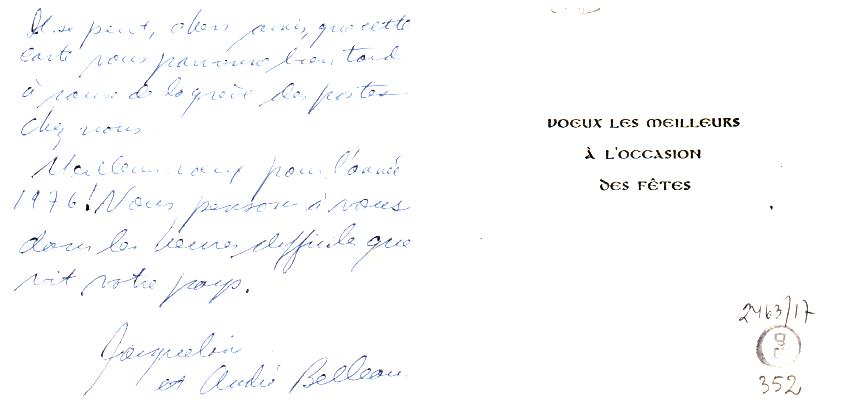 Il se peut, chers amis, que cette
carte vous parvienne bien tard
à cause de la grève des postes
chez nous.
Meilleurs vœux pour l'année
1976! Nous pensons à vous
dans les heures difficiles que
vit votre pays.
Jacqueline
et André Belleau
VOEUX LES MEILLEURS
À L'OCCASION
DES FÊTES
2463/17
352